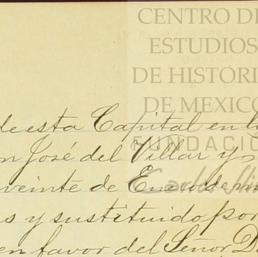 CENTRO DE
ESTUDIOS
DE HISTORI
DE MEXICO
FUNDACIÓ
de esta Capital en l
n José del Villar y
veinte de Enero
s y sustituido por
en favor del Señor D